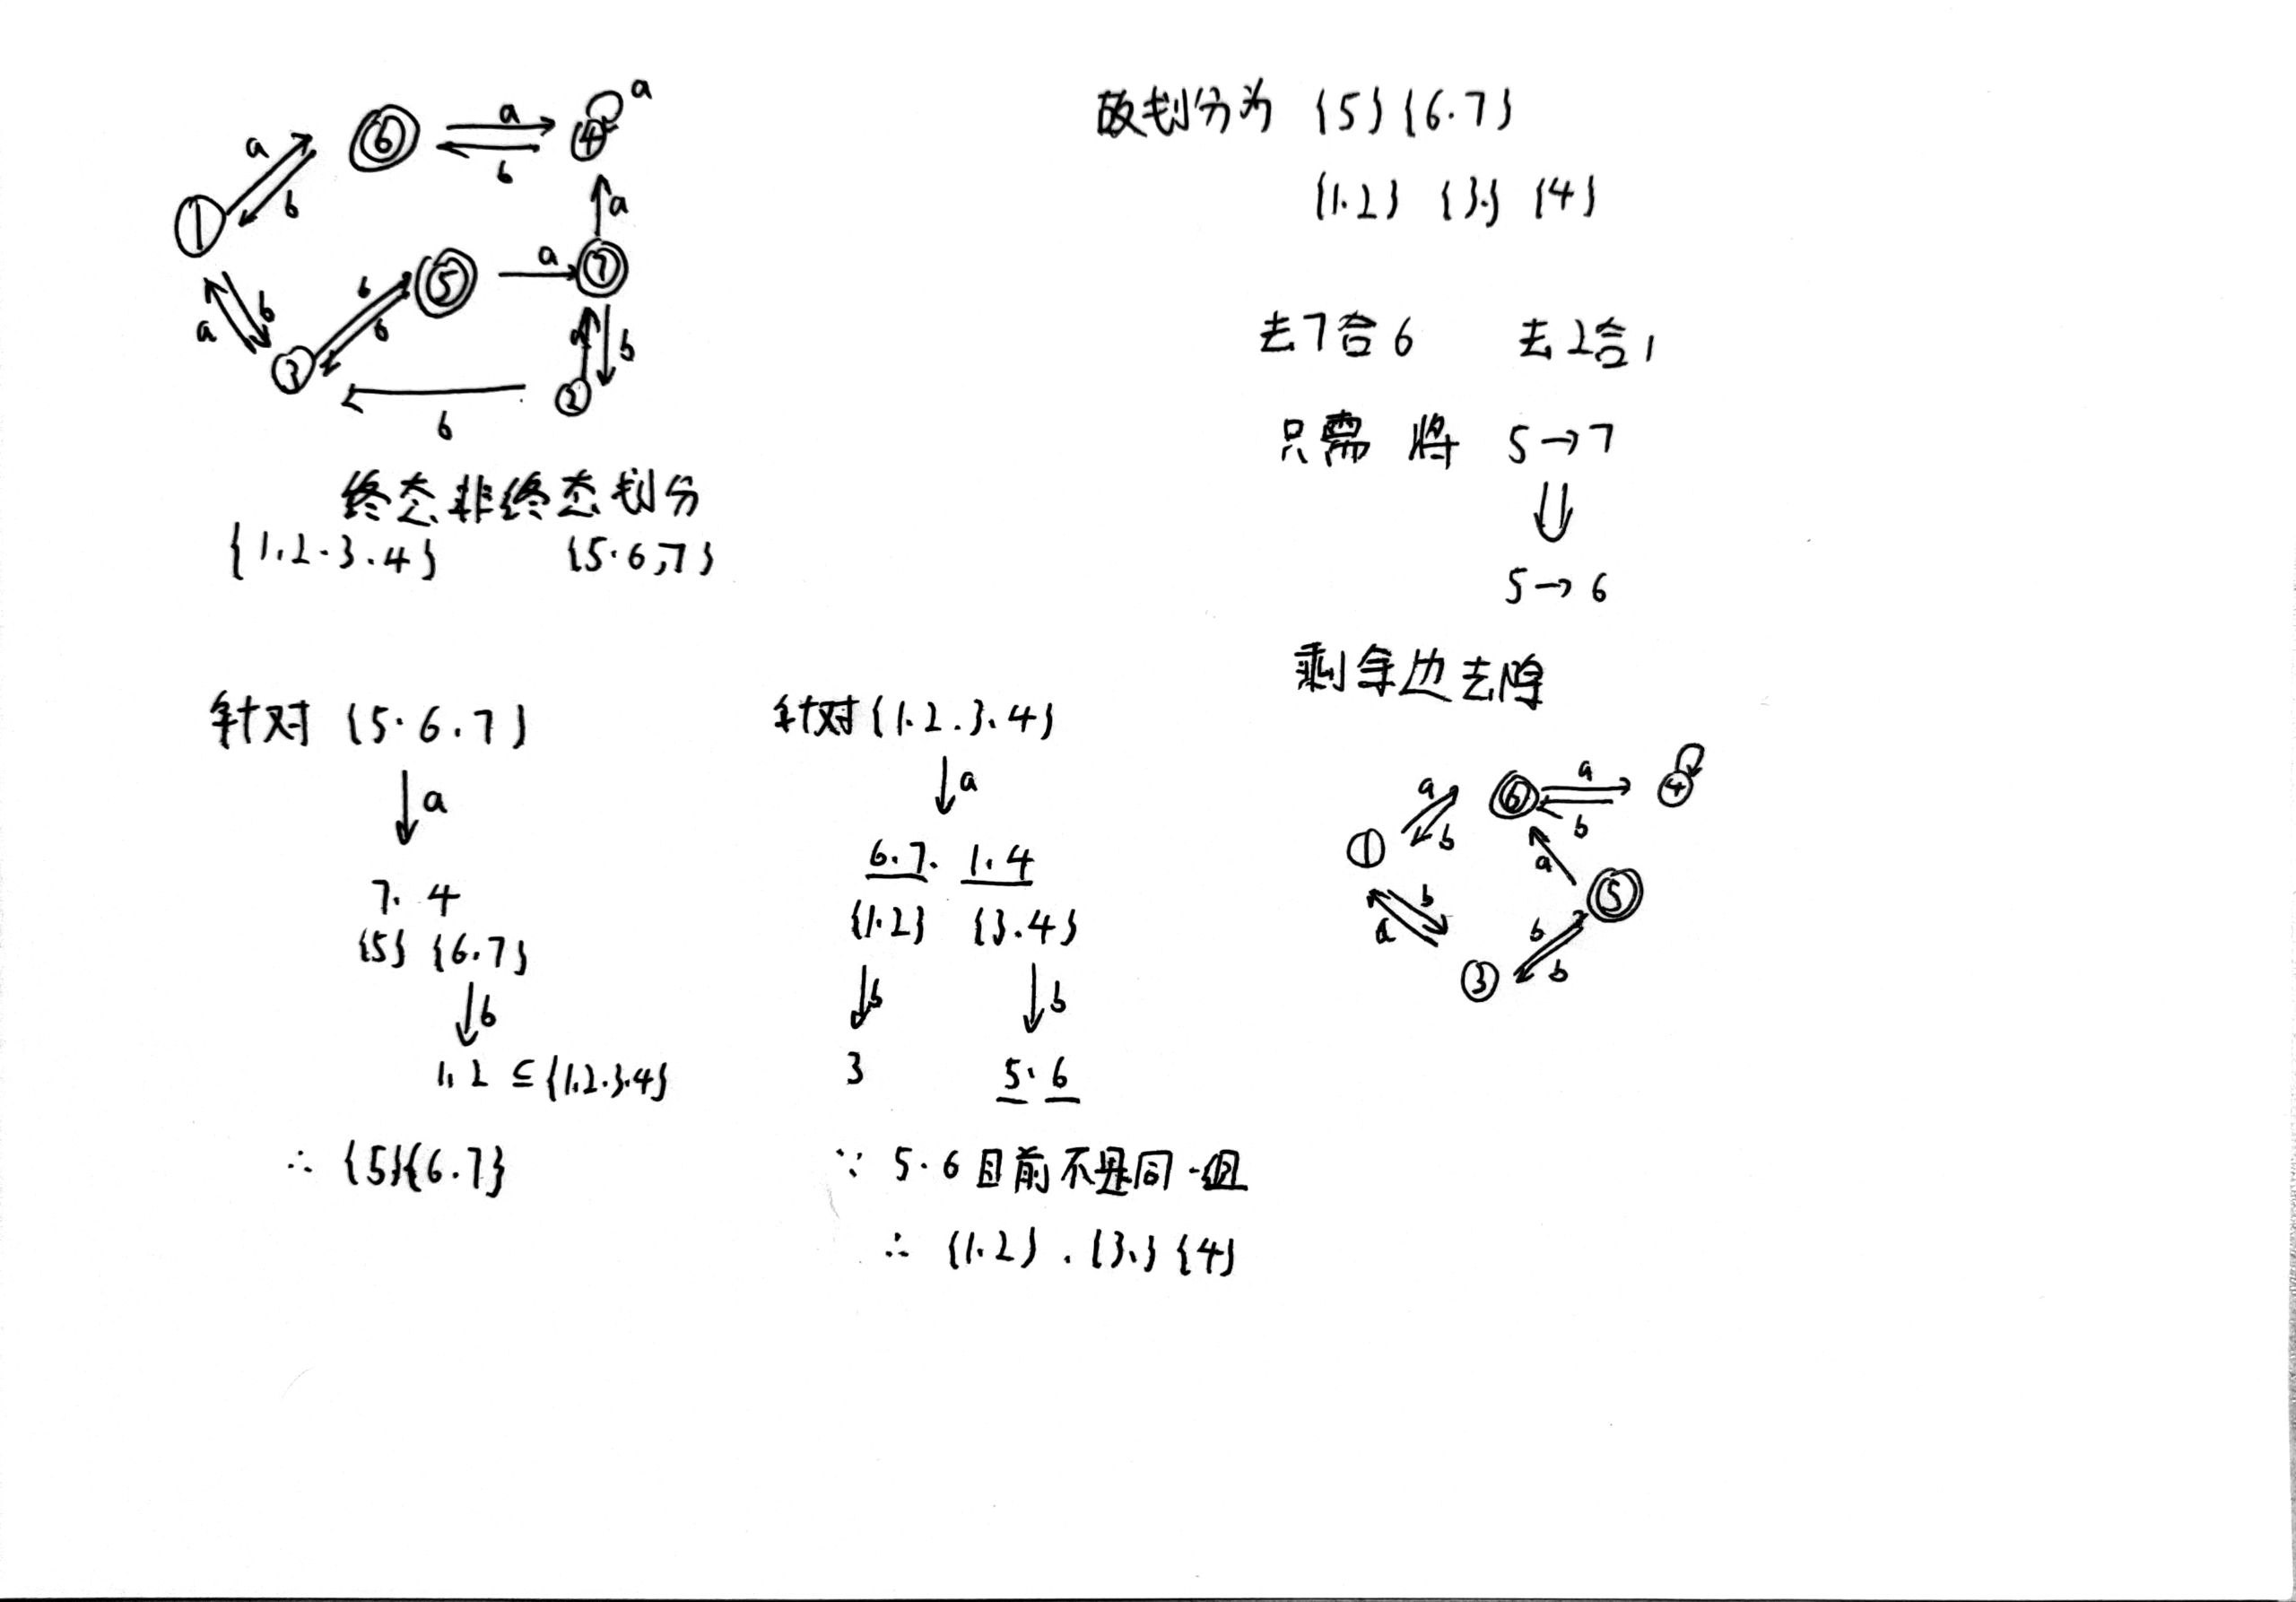 a
a
⑥ ④
b
a
b
①
a
a
⑤ ⑦
b
b
a
b
a
b
③
②
b
终态非终态划分
{1.2.3.4} {5.6,7}
针对 {5.6.7}
a
7. 4
{5} {6.7}
b
1, 2 ⊆ {1.2.3.4}
∴ {5}{6.7}
针对{1.2.3.4}
a
6.7. 1.4
{1.2} {3.4}
b b
3 5. 6
∵ 5.6目前不是同一组
∴ {1.2}.{3.}{4}
故划分为 {5}{6.7}
{1.2} {3.} {4}
去7合6 去2合1
只需 将 5→7
⇓
5→6
剩余边去除
a
a
⑥ ④
b
b
①
a
⑤
b
a
b
b
③